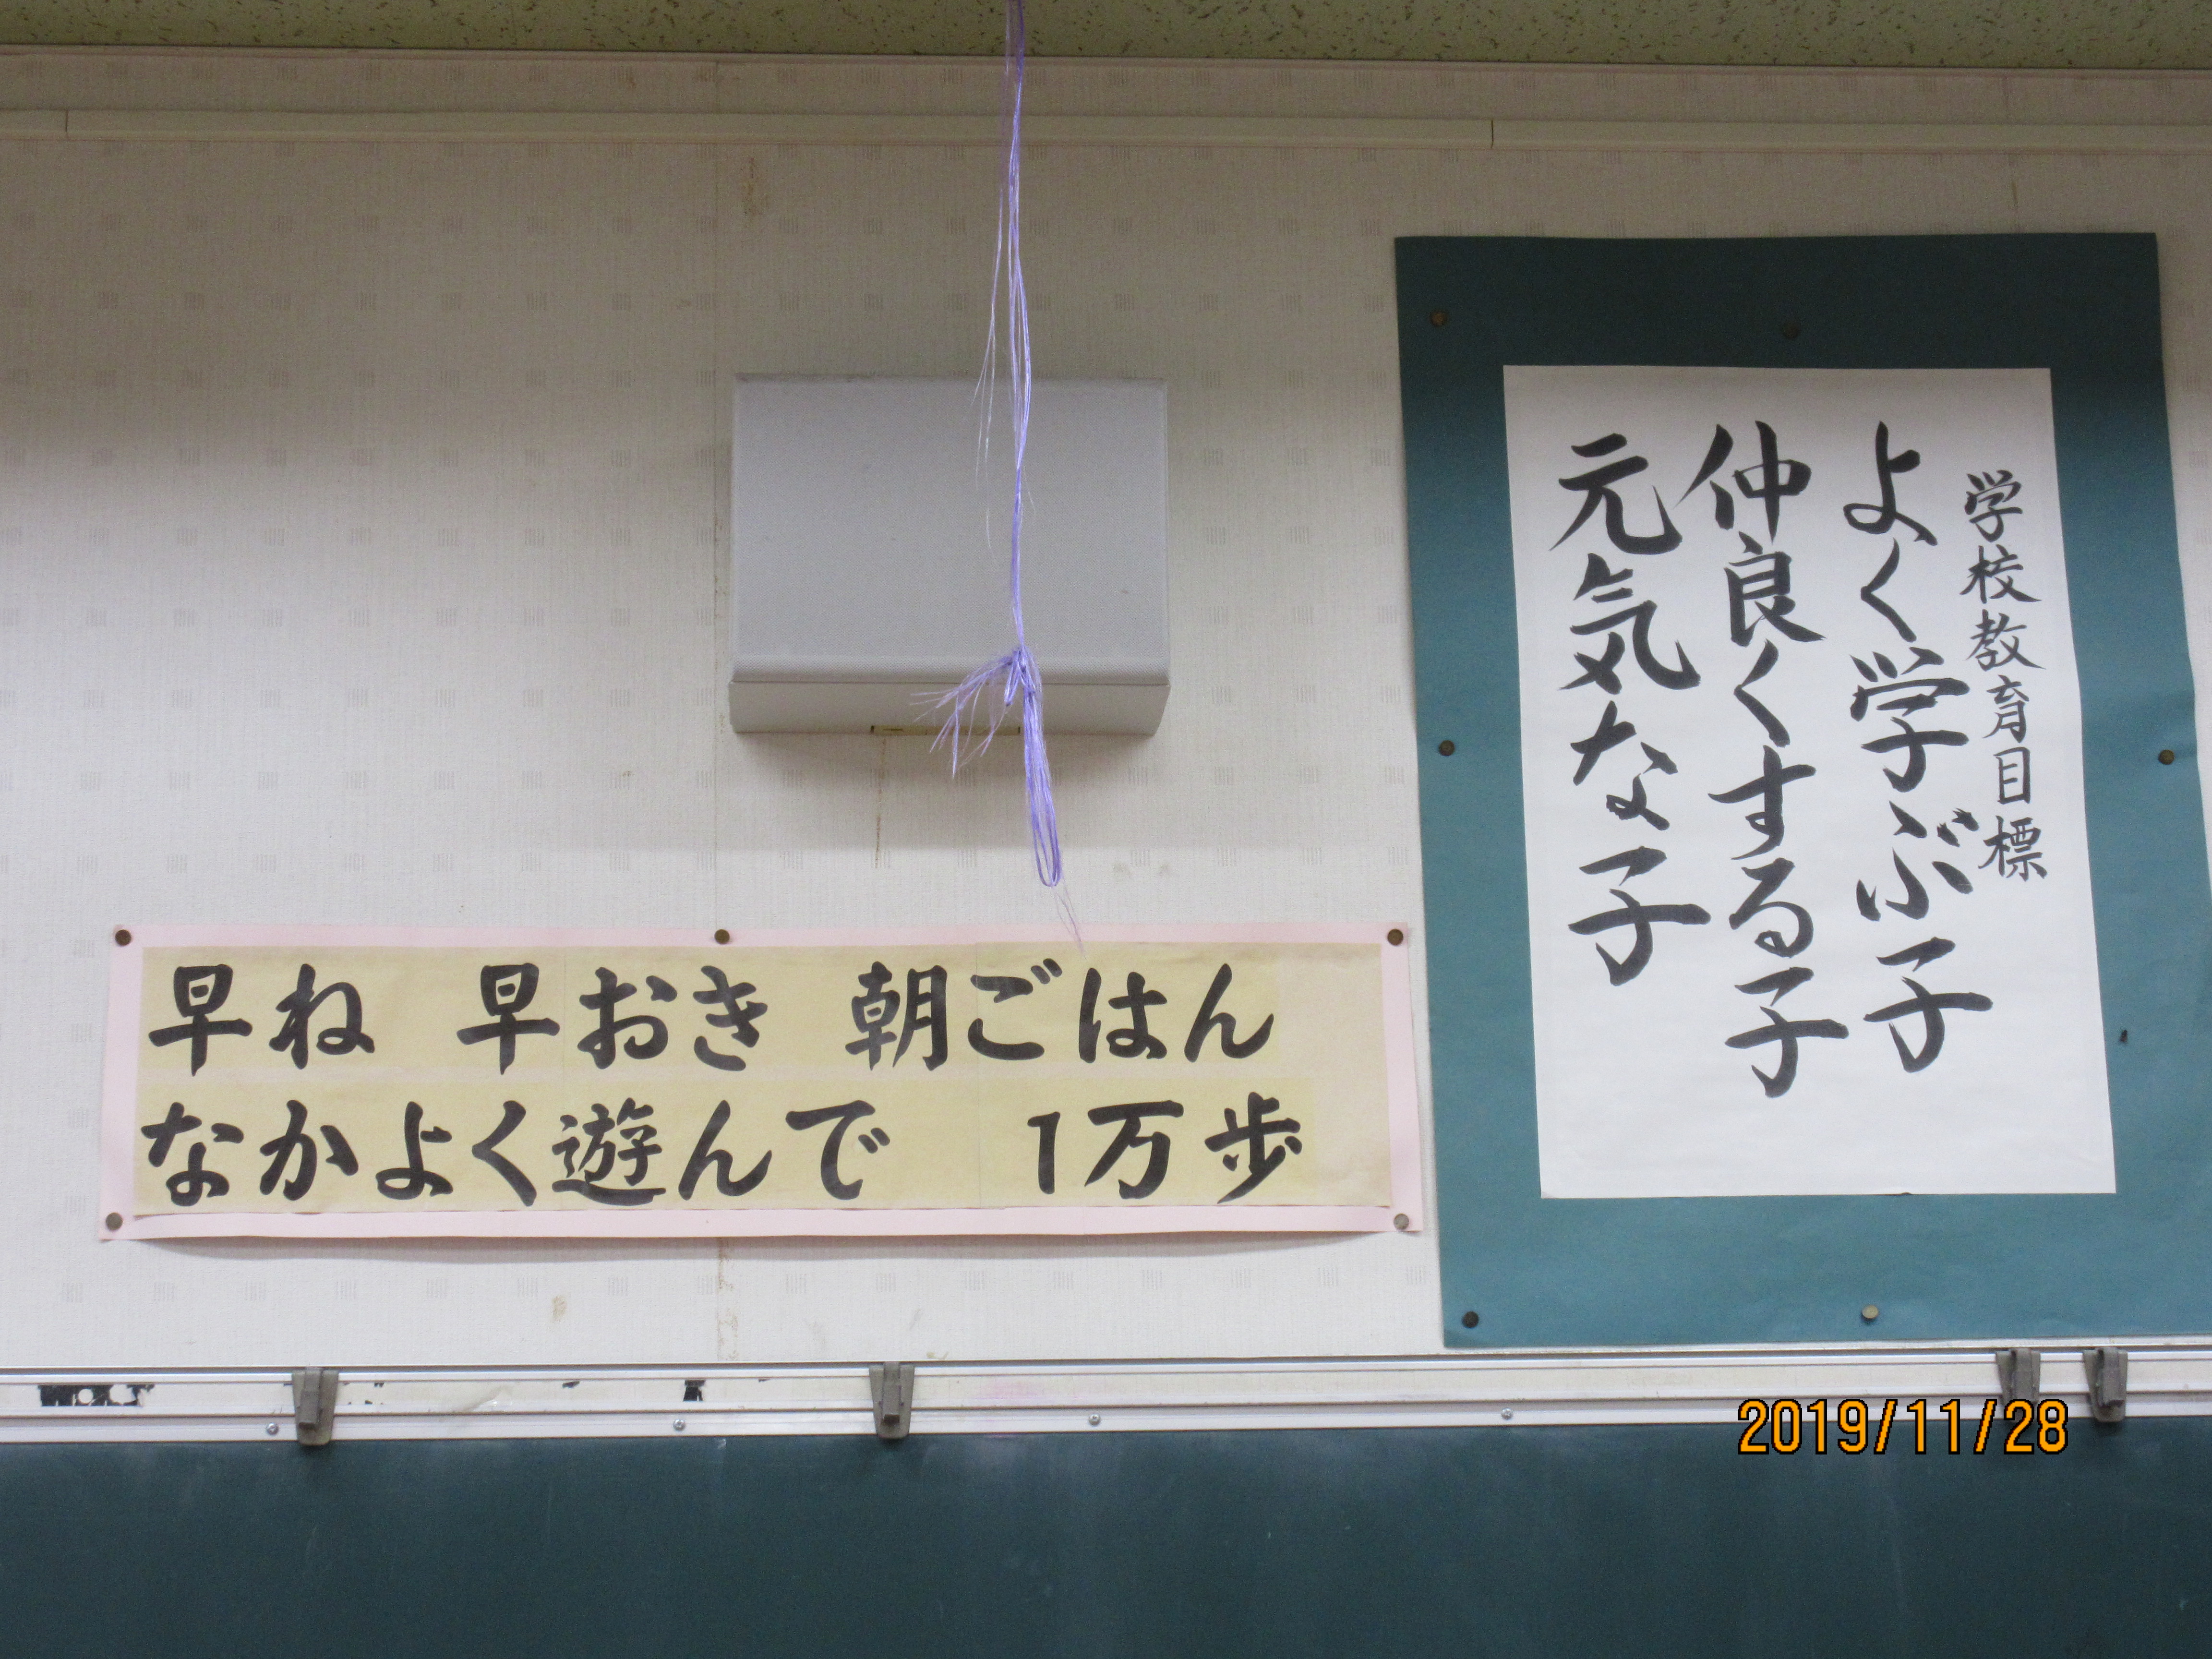 早ね 早おき 朝ごはん
なかよく遊んで 1万歩
学校教育目標
よく学ぶ子
仲良くする子
元気な子
2019/11/28